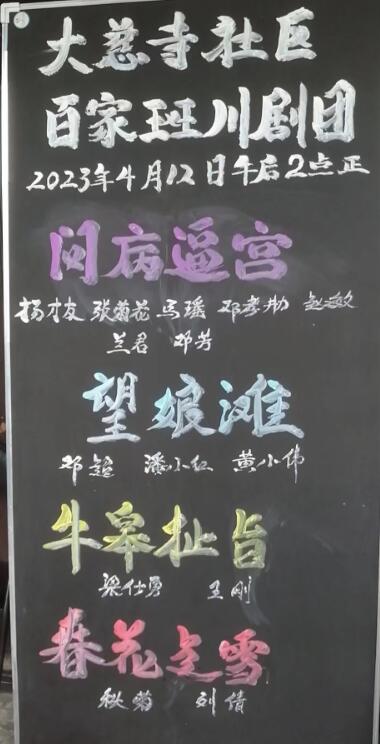 大慈寺社区
百家班川剧团
2023年4月12日午后2点正
问病逼宫
杨才友 张菊花 马瑶 邓孝勋 赵敏
兰君 邓芳
望娘滩
邓超 潘小红 黄小伟
牛皋扯旨
梁仕勇 王刚
春花走雪
秋菊 刘倩